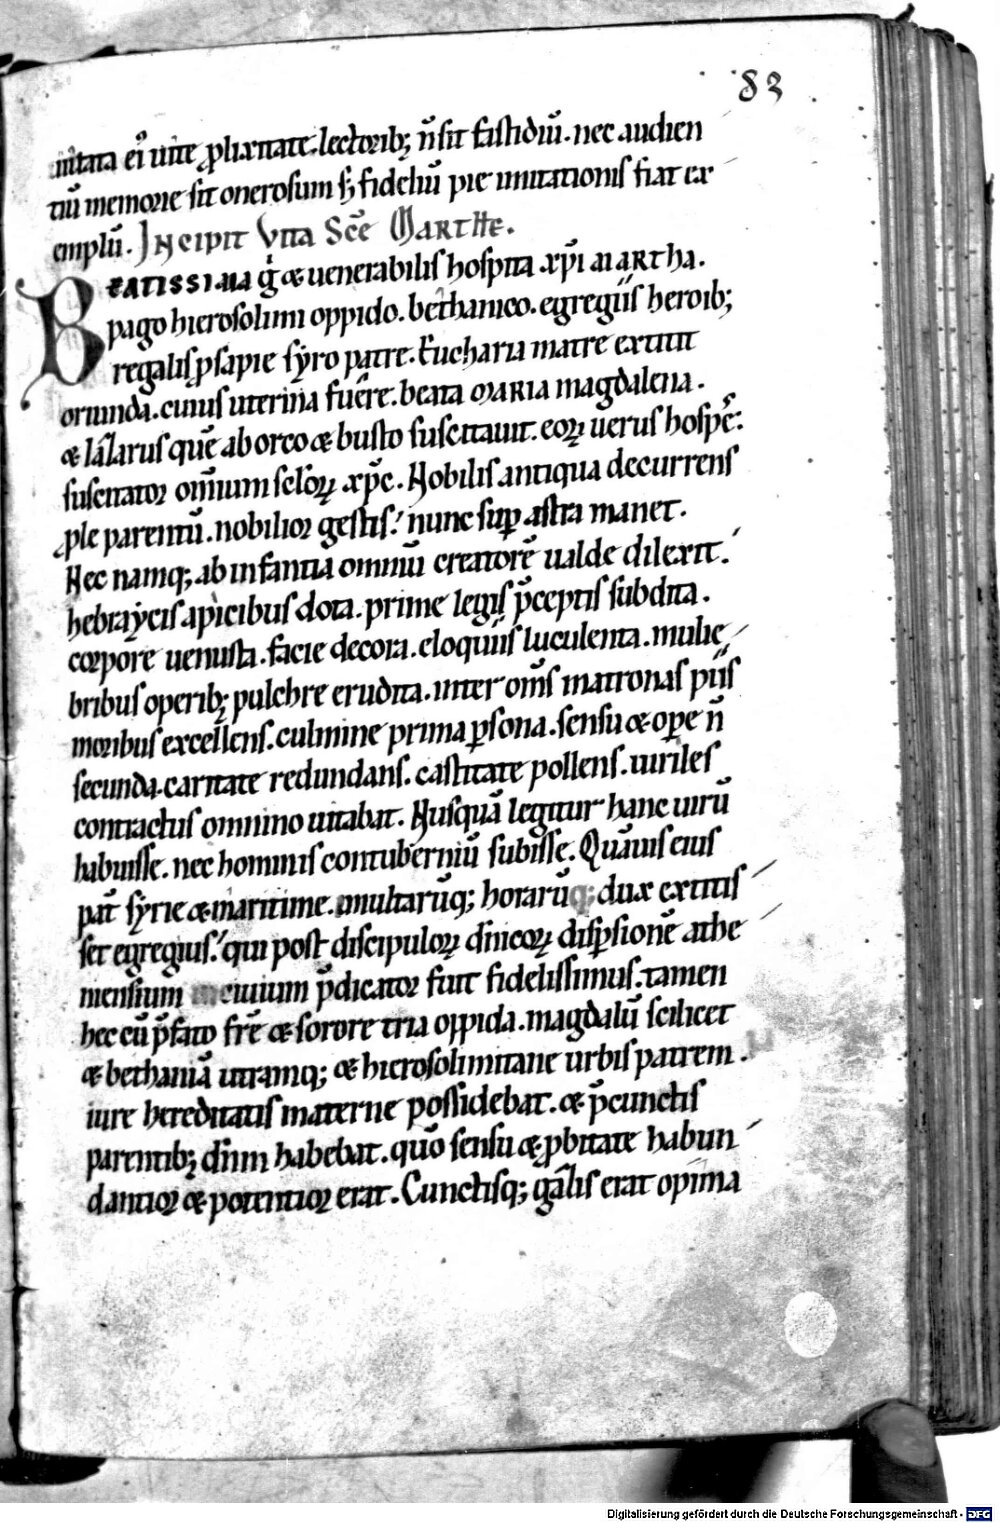 83
mitata ei᷒ uite ꝓlixitate. lectorib; n̄ sit fastidiū. nec audien
tiū memorie sit onerosum sꝫ fideliū pie imitationis fiat ex
emplū. Incipit Vita Scē Marthe.
Beatissima g̊ & uenerabilis hospita xp̄i Martha.
pago hierosolimi oppido. bethanico. egregiis heroib;
regalis ꝓsapie syro patre. Eucharia matre extitit
oriunda. cuius uterina fuēre. beata Maria magdalena.
& lazarus quē ab orco & busto suscitauit. eoꝝ uerus hospes:
suscitator omnium scl̄oꝝ xp̄c. Nobilis antiqua decurrens
ꝓle parentū. nobilior gestis! nunc suꝑ astra manet.
Hec namq; ab infantia omniū creatorē ualde dilexit.
hebraycis apicibus dota. prime legis p̄ceptis subdita.
corpore uenusta. facie decora. eloquiis luculenta. mulie
bribus operib; pulchre erudita. inter om̄s matronas piis
moribus excellens. culmine prima ꝑsona. sensu & ope n̄
secunda. caritate redundans. castitate pollens. uiriles
contractus omnino uitabat. Nusquā legitur hanc uirū
habuisse. nec hominis contuberniū subisse. Quāuis eius
pat̄ syrie & maritime. multarūq; horarūq; dux extitis
set egregius! qui post discipuloꝝ dn̄icoꝝ disp̄sionē athe
niensium ciuium p̄dicator fuit fidelissimus. tamen
hec cū p̄fato fr̄e & sorore tria oppida. magdalū scilicet
& bethaniā utramq; & hierosolimitane urbis patrem.
iure hereditatis materne possidebat. & p̄cunctis
parentib; dn̄m habebat. quō sensu & ꝓbitate habun
dantior & potentior erat. Cunctisq; gn̄alis erat opima
Digitalisierung gefördert durch die Deutsche Forschungsgemeinschaft - DFG